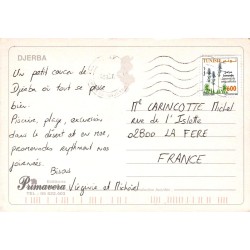 DJERBA
Un petit coucou de
Djerba où tout se passe
bien.
Piscine, plage, excursion
dans le désert et en mer,
promenades rythment nos
journées.
Bisous
Virginie et Mickael
Primavera
TUNISIE
600
Mr CARINCOTTE Michel
rue de l'Islette
02800 LA FERE
FRANCE